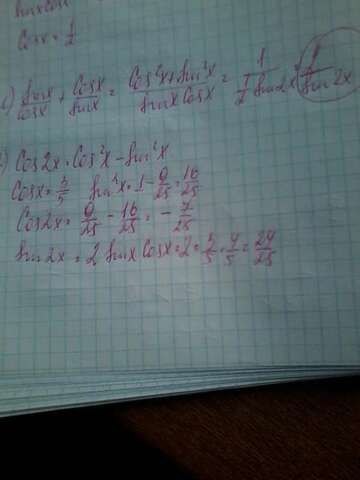 sinx cosx
cosx = 1/2
) sinx/cosx + cosx/sinx = cos²x + sin²x / sinx cosx = 1 / 1/2 sin2x = 2/sin2x
) cos2x = cos²x - sin²x
cosx = 3/5 sin²x = 1 - 9/25 = 16/25
cos2x = 9/25 - 16/25 = - 7/25
sin2x = 2 sinx cosx = 2 · 3/5 · 4/5 = 24/25